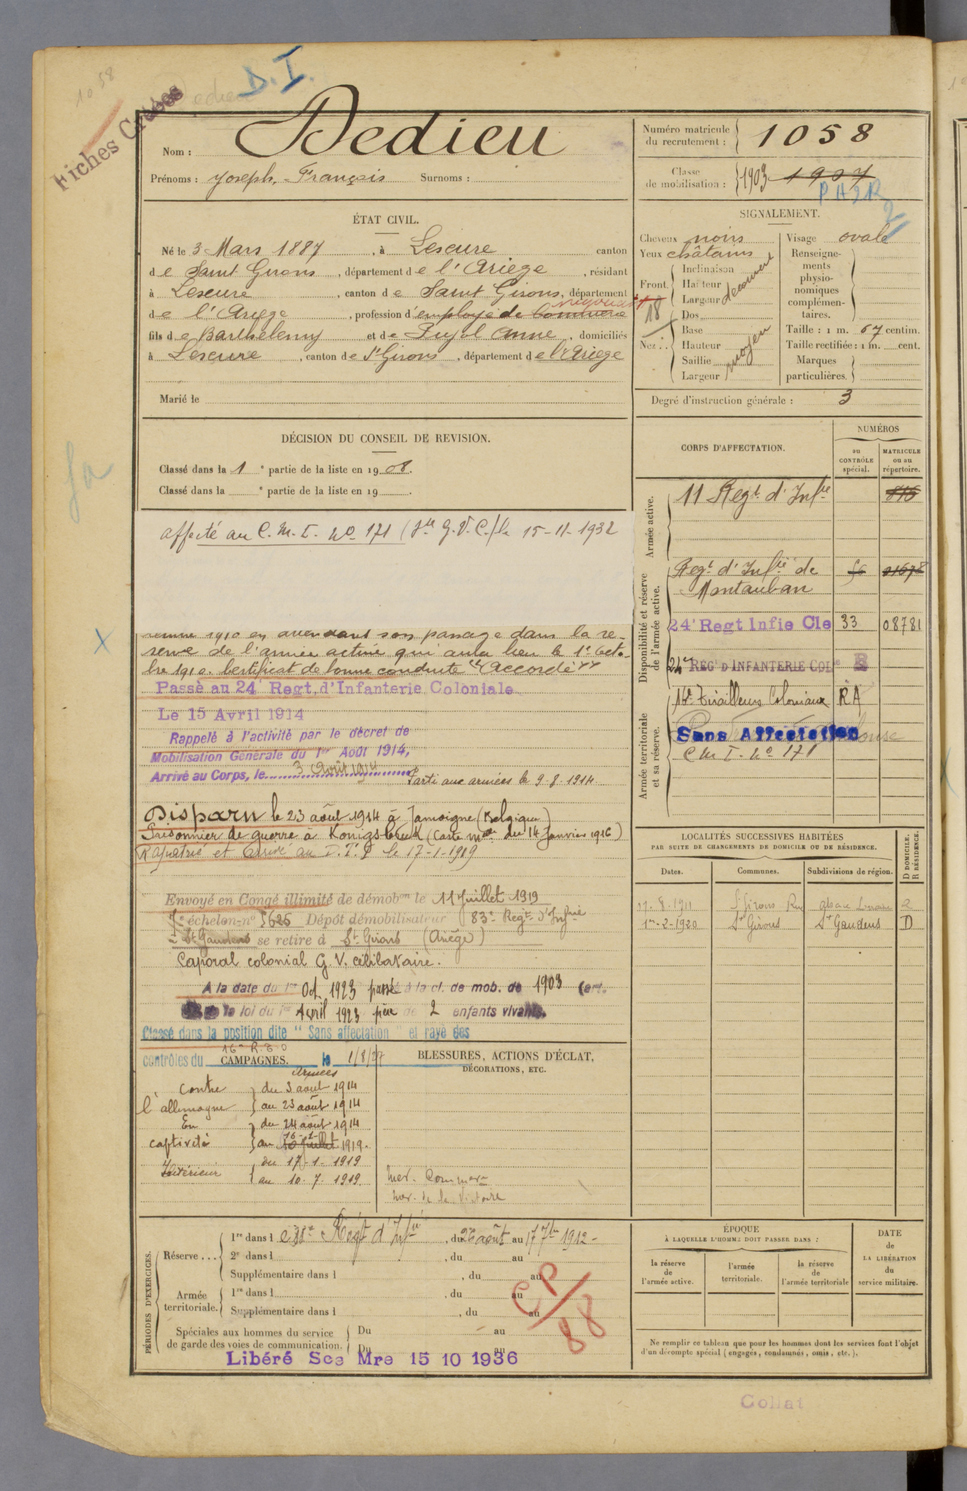 1058
D. I.
Fiches Croisées
Nom : Dedieu
Prénoms : Joseph, François Surnoms :
Numéro matricule du recrutement : 1058
Classe de mobilisation : 1903 1907
ÉTAT CIVIL.
Né le 3 Mars 1887, à Lescure canton
de Saint Girons, département de l'Ariège, résidant
à Lescure, canton de Saint Girons, département
de l'Ariège, profession d'employé de commerce
fils de Barthélemy et de Pujol Anne, domiciliés
à Lescure, canton de St Girons, département de l'Ariège
Marié le
SIGNALEMENT.
Cheveux noirs
Yeux châtains
Front. Inclinaison
Hauteur
Largeur
découvert
18
Nez : Dos
Base
Hauteur
Saillie
Largeur
moyen
Visage ovale
Renseignements physionomiques complémentaires.
Taille : 1 m. 67 centim.
Taille rectifiée : 1 m. cent.
Marques particulières.
Degré d'instruction générale : 3
DÉCISION DU CONSEIL DE REVISION.
Classé dans la 1e partie de la liste en 1908.
Classé dans la e partie de la liste en 19 .
affecté au C. M. I. no 171 (Sts G. V. C.) le 15-11-1932
1910 en attendant son passage dans la re-
serve de l'armée active qui aura lieu le 1er Octo-
bre 1910. Certificat de bonne conduite "Accordé"
Passé au 24e Regt. d'Infanterie Coloniale
Le 15 Avril 1914
Rappelé à l'activité par le décret de
Mobilisation Générale du 1er Août 1914,
Arrivé au Corps, le 3 Août 1914 Parti aux armées le 9-8-1914
Disparu le 23 août 1914 à Jamoigne (Belgique)
Prisonnier de guerre à Königsbrück (carte du 14 Janvier 1916)
Rapatrié et arrivé au D. I. le 17-1-1919
Envoyé en Congé illimité de démobon le 11 Juillet 1919
échelon no 5625 Dépôt démobilisateur 83e Regt d'Infrie
St Gaudens se retire à St Girons (Ariège)
Caporal colonial G. V. célibataire.
A la date du 1er Oct. 1923 passé à la cl. de mob. de 1903 (art.
la loi du 1er Avril 1923 père de 2 enfants vivants.
Classé dans la position dite "Sans affectation" et rayé des
contrôles du le 1/8/27
CORPS D'AFFECTATION.
NUMÉROS
au CONTRÔLE spécial.
MATRICULE ou au répertoire.
Armée active.
11 Regt d'Infie
Disponibilité et réserve de l'armée active.
Regt d'Infie de Montauban
24e Regt Infie Cle 33 08781
24e REGt D'INFANTERIE COLe R
Armée territoriale et sa réserve.
16e Tirailleurs Coloniaux RA
Sans Affectation
C M I. no 171
LOCALITÉS SUCCESSIVES HABITÉES
PAR SUITE DE CHANGEMENTS DE DOMICILE OU DE RÉSIDENCE.
Dates. Communes. Subdivisions de région. D DOMICILE. R RÉSIDENCE.
17-8-1911 St Girons
1er-2-1920 St Girons St Gaudens D
CAMPAGNES.
Contre l'allemagne
Armées
du 3 août 1914
au 23 août 1914
En captivité
du 24 août 1914
au 16-1- 1919.
Intérieur
du 17-1-1919
au 10-7-1919
BLESSURES, ACTIONS D'ÉCLAT,
DÉCORATIONS, ETC.
Med. Commve
Med. de la Victoire
PÉRIODES D'EXERCICES.
Réserve . . . 1re dans le Regt d'Infie, du 26 août au 17 7bre 1912-
2e dans l , du au
Supplémentaire dans l , du au
Armée territoriale. 1re dans l , du au
Supplémentaire dans l , du au
Spéciales aux hommes du service de garde des voies de communication. Du au
Du au
CP/88
Libéré Sce Mre 15 10 1936
ÉPOQUE
À LAQUELLE L'HOMME DOIT PASSER DANS :
la réserve de l'armée active.
l'armée territoriale.
la réserve de l'armée territoriale
DATE de LA LIBÉRATION du service militaire.
Ne remplir ce tableau que pour les hommes dont les services font l'objet
d'un décompte spécial (engagés, condamnés, omis, etc.).
Collat